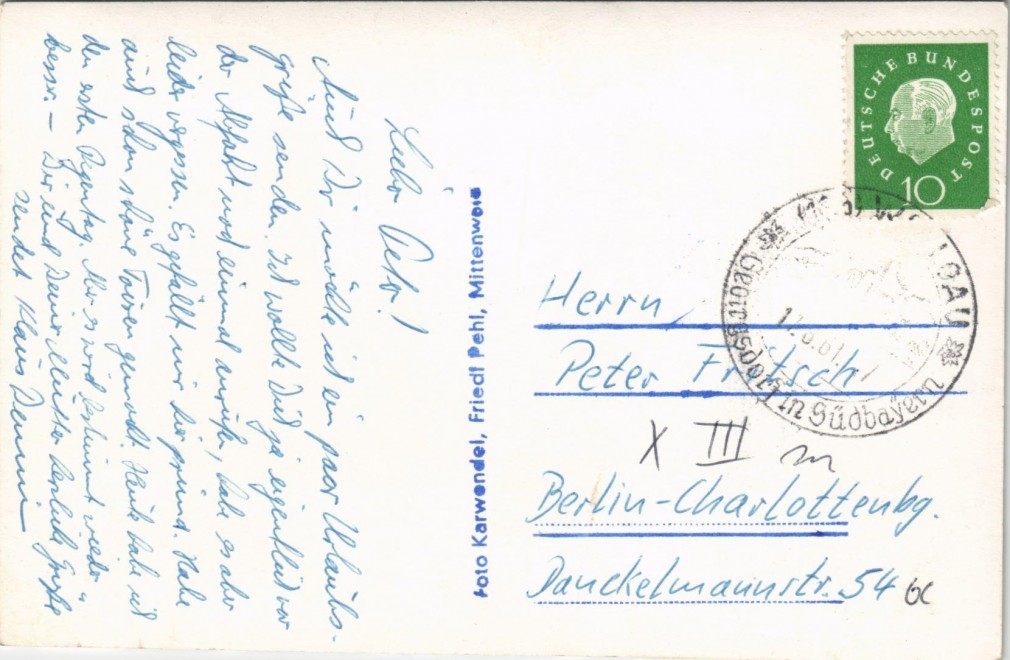 Lieber Peter!
Auch Dir möchte ich ein paar Urlaubs-
grüße senden. Ich wollte Dich ja eigentlich vor
der Abfahrt noch einmal anrufen, habe es aber
leider vergessen. Es gefällt mir hier prima. Habe
auch schon schöne Touren gemacht. Heute habe ich
den ersten Regentag. Aber es wird bestimmt wieder
besser. – Dir und Deiner Mutter herzliche Grüße
sendet Klaus
Foto Karwendel, Friedl Pehl, Mittenwald
DEUTSCHE BUNDESPOST
10
LGÄU
in Südbayern
Herrn
Peter Fritsch
X III m
Berlin-Charlottenbg.
Danckelmannstr. 54